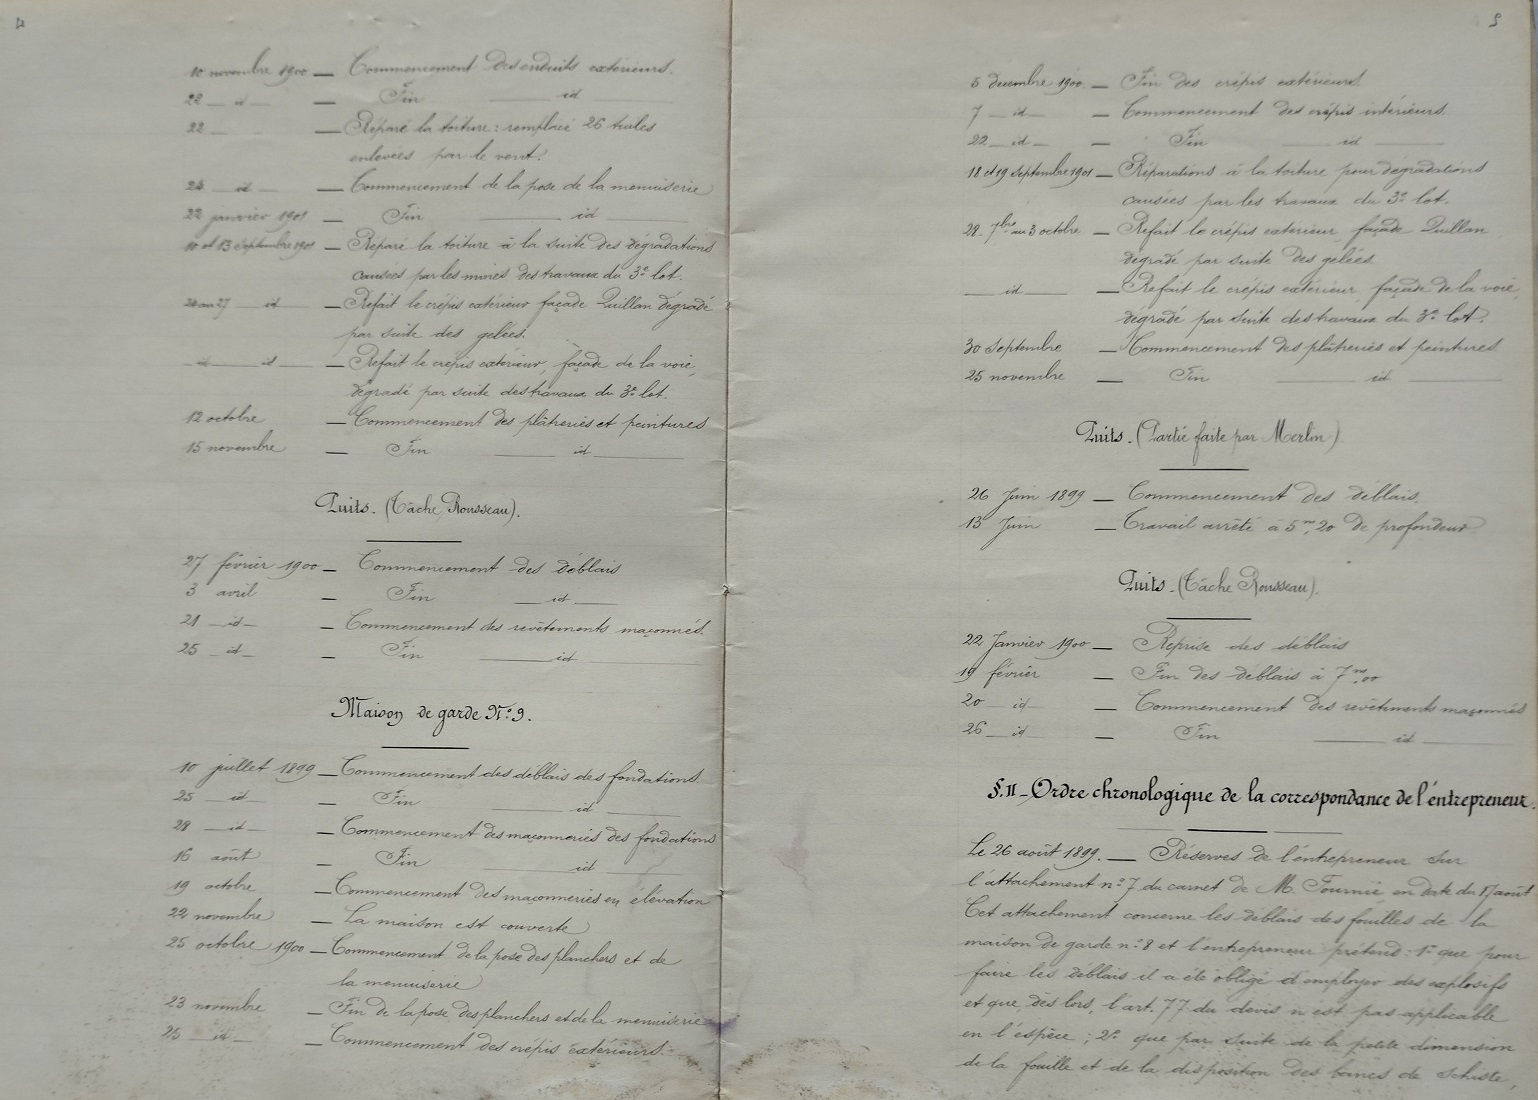 4
10 novembre 1900 — Commencement des enduits extérieurs.
22 — id — — Fin — id —
22 — Réparé la toiture : remplacé 26 tuiles
enlevées par le vent.
24 — id — — Commencement de la pose de la menuiserie
22 janvier 1901 — Fin — id —
10 et 13 septembre 1901 — Réparé la toiture à la suite des dégradations
causées par les mines des travaux du 3e lot.
24 au 27 — id — Refait le crépis extérieur façade Quillan dégradé
par suite des gelées.
— id — id — Refait le crépis extérieur, façade de la voie,
dégradé par suite des travaux du 3e lot.
12 octobre — Commencement des plâtreries et peintures
15 novembre — Fin — id —
Puits. (Tâche Rousseau).
27 février 1900 — Commencement des déblais
3 avril — Fin — id —
21 — id — — Commencement des revêtements maçonnés.
25 — id — — Fin — id —
Maison de garde N° 9.
10 juillet 1899 — Commencement des déblais des fondations.
25 — id — — Fin — id —
28 — id — — Commencement des maçonneries des fondations
16 août — Fin — id —
19 octobre — Commencement des maçonneries en élévation
22 novembre — La maison est couverte
25 octobre 1900 — Commencement de la pose des planchers et de
la menuiserie
23 novembre — Fin de la pose des planchers et de la menuiserie
25 — id — — Commencement des crépis extérieurs.
5
5 décembre 1900 — Fin des crépis extérieurs.
7 — id — — Commencement des crépis intérieurs.
22 — id — — Fin — id —
18 et 19 septembre 1901 — Réparations à la toiture pour dégradations
causées par les travaux du 3e lot.
28 7bre au 3 octobre — Refait le crépis extérieur, façade Quillan
dégradé par suite des gelées.
— id — — Refait le crépis extérieur, façade de la voie,
dégradé par suite des travaux du 3e lot.
30 septembre — Commencement des plâtreries et peintures.
25 novembre — Fin — id —
Puits. (Partie faite par Merlin.)
26 Juin 1899 — Commencement des déblais.
13 Juin — Travail arrêté à 5m,20 de profondeur.
Puits. (Tâche Rousseau).
22 Janvier 1900 — Reprise des déblais
19 février — Fin des déblais à 7m,00
20 — id — — Commencement des revêtements maçonnés
26 — id — — Fin — id —
§. II — Ordre chronologique de la correspondance de l'entrepreneur.
Le 26 août 1899. — Réserves de l'entrepreneur sur
l'attachement n° 7 du carnet de M. Fournié, en date du 17 août
Cet attachement concerne les déblais des fouilles de la
maison de garde n° 8 et l'entrepreneur prétend : 1° que pour
faire les déblais il a été obligé d'employer des explosifs
et que, dès lors, l'art. 77 du devis n'est pas applicable
en l'espèce ; 2° que par suite de la petite dimension
de la fouille et de la disposition des bancs de schiste,